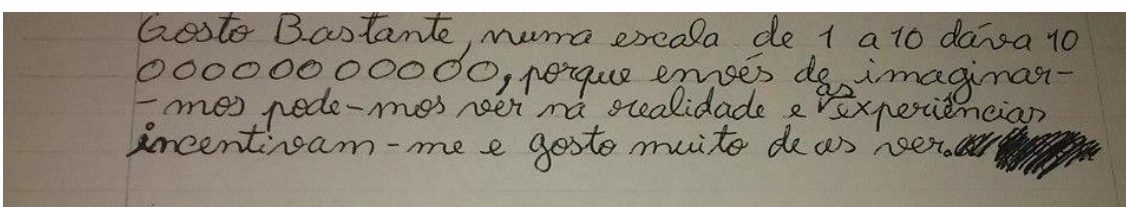 Gosto Bastante, numa escala de 1 a 10 dáva 10
00000000000, porque envés de imaginar-
-mos pode-mos ver na realidade e as experiências
incentivam-me e gosto muito de as ver.